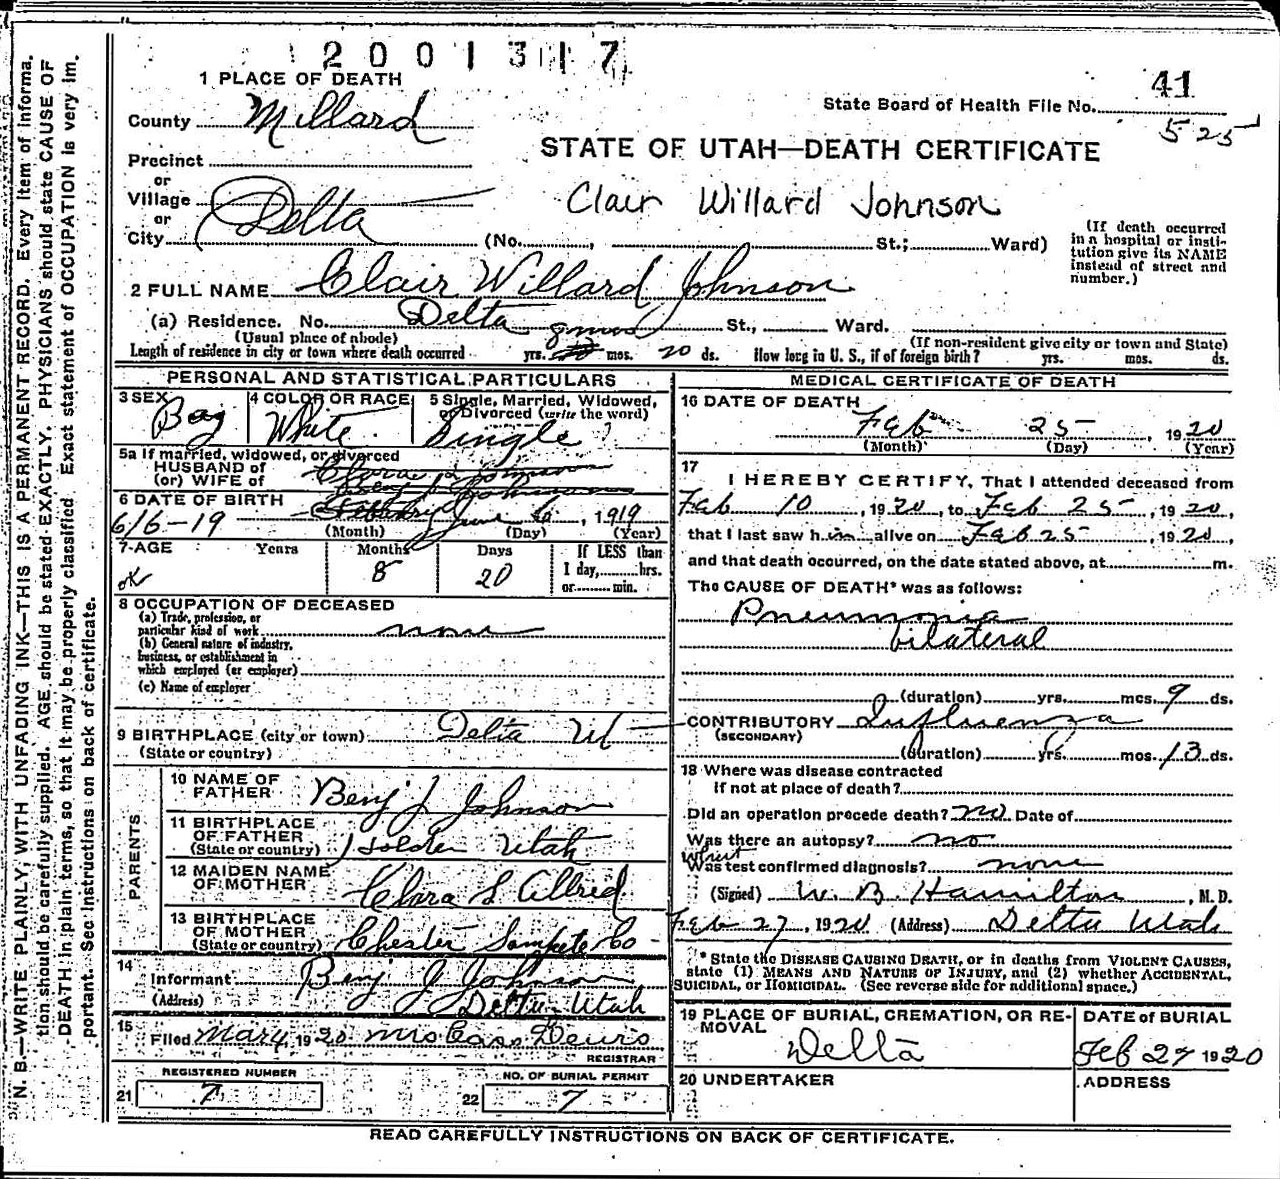 2001317
1 PLACE OF DEATH
41
State Board of Health File No.
525
County Millard
STATE OF UTAH—DEATH CERTIFICATE
Precinct
or
Village
Clair Willard Johnson
or
City Delta (No. , St.; Ward)
(If death occurred in a hospital or insti-
tution give its NAME
instead of street and
number.)
2 FULL NAME Clair Willard Johnson
(a) Residence. No. Delta St., Ward.
(Usual place of abode)
(If non-resident give city or town and State)
8 mos
Length of residence in city or town where death occurred yrs. mos. 20 ds. How long in U. S., if of foreign birth? yrs. mos. ds.
PERSONAL AND STATISTICAL PARTICULARS
3 SEX
Boy
4 COLOR OR RACE
White
5 Single, Married, Widowed,
or Divorced (write the word)
Single
5a If married, widowed, or divorced
HUSBAND of
(or) WIFE of
6 DATE OF BIRTH
6/6-19 June 6, 1919
(Month) (Day) (Year)
7 AGE Years Months Days If LESS than
1 day, hrs.
or min.
OK 8 20
8 OCCUPATION OF DECEASED
(a) Trade, profession, or
particular kind of work none
(b) General nature of industry,
business, or establishment in
which employed (or employer)
(c) Name of employer
9 BIRTHPLACE (city or town) Delta Ut
(State or country)
PARENTS
10 NAME OF
FATHER Benj J. Johnson
11 BIRTHPLACE
OF FATHER
(State or country) Holden Utah
12 MAIDEN NAME
OF MOTHER Clara S Allred
13 BIRTHPLACE
OF MOTHER
(State or country) Chester Sanpete Co
14 Informant Benj J Johnson
(Address) Delta Utah
15 Filed 1920 Mrs
REGISTRAR
REGISTERED NUMBER
21 7
NO. OF BURIAL PERMIT
22 7
MEDICAL CERTIFICATE OF DEATH
16 DATE OF DEATH
Feb 25 1920
(Month) (Day) (Year)
17
I HEREBY CERTIFY, That I attended deceased from
Feb 10, 1920, to Feb 25, 1920,
that I last saw him alive on Feb 25, 1920,
and that death occurred, on the date stated above, at m.
The CAUSE OF DEATH* was as follows:
Pneumonia
bilateral
(duration) yrs. mos. 9 ds.
CONTRIBUTORY Influenza
(SECONDARY)
(duration) yrs. mos. 13 ds.
18 Where was disease contracted
if not at place of death?
Did an operation precede death? no Date of
Was there an autopsy? no
What test confirmed diagnosis? none
(Signed) W. B. Hamilton, M. D.
Feb 27, 1920 (Address) Delta Utah
* State the DISEASE CAUSING DEATH, or in deaths from VIOLENT CAUSES,
state (1) MEANS AND NATURE OF INJURY, and (2) whether ACCIDENTAL,
SUICIDAL, or HOMICIDAL. (See reverse side for additional space.)
19 PLACE OF BURIAL, CREMATION, OR RE-
MOVAL
Delta
DATE of BURIAL
Feb 27 1920
20 UNDERTAKER
ADDRESS
READ CAREFULLY INSTRUCTIONS ON BACK OF CERTIFICATE.
N. B.—WRITE PLAINLY, WITH UNFADING INK—THIS IS A PERMANENT RECORD. Every item of informa-
tion should be carefully supplied. AGE should be stated EXACTLY. PHYSICIANS should state CAUSE OF
DEATH in plain terms, so that it may be properly classified. Exact statement of OCCUPATION is very im-
portant. See instructions on back of certificate.